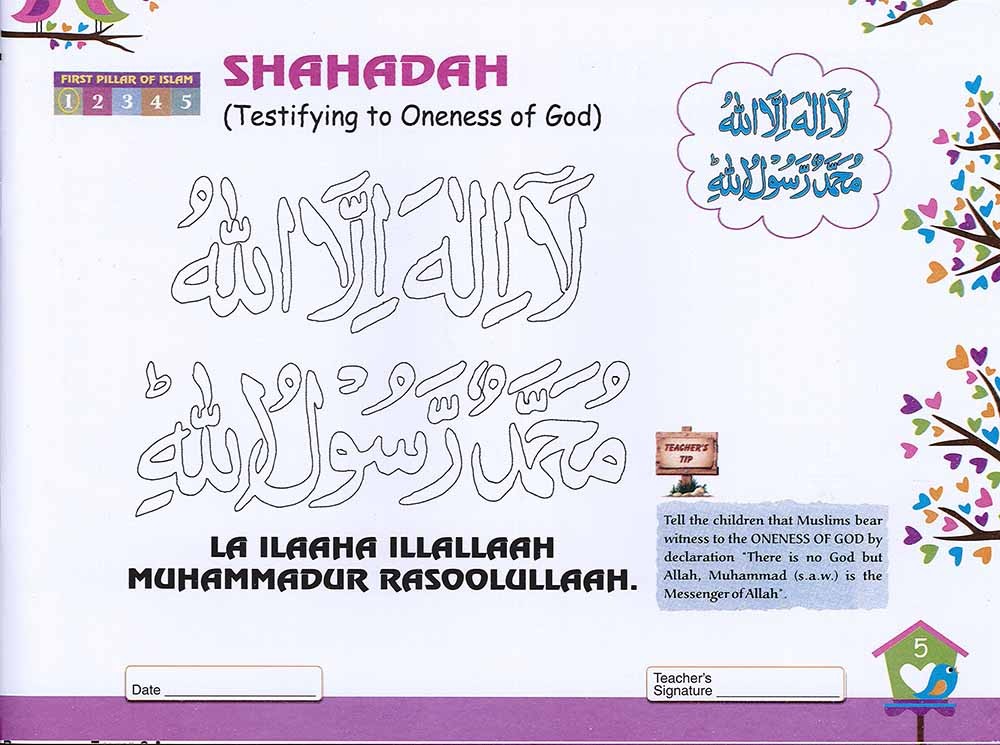 FIRST PILLAR OF ISLAM
1 2 3 4 5
SHAHADAH
(Testifying to Oneness of God)
لَآ اِلٰهَ اِلَّا اللهُ
مُحَمَّدٌ رَّسُوْلُ اللهِؕ
لَآ اِلٰهَ اِلَّا اللهُ
مُحَمَّدٌ رَّسُوْلُ اللهِؕ
LA ILAAHA ILLALLAAH
MUHAMMADUR RASOOLULLAAH.
TEACHER'S
TIP
Tell the children that Muslims bear
witness to the ONENESS OF GOD by
declaration "There is no God but
Allah, Muhammad (s.a.w.) is the
Messenger of Allah".
Date
Teacher's
Signature
5